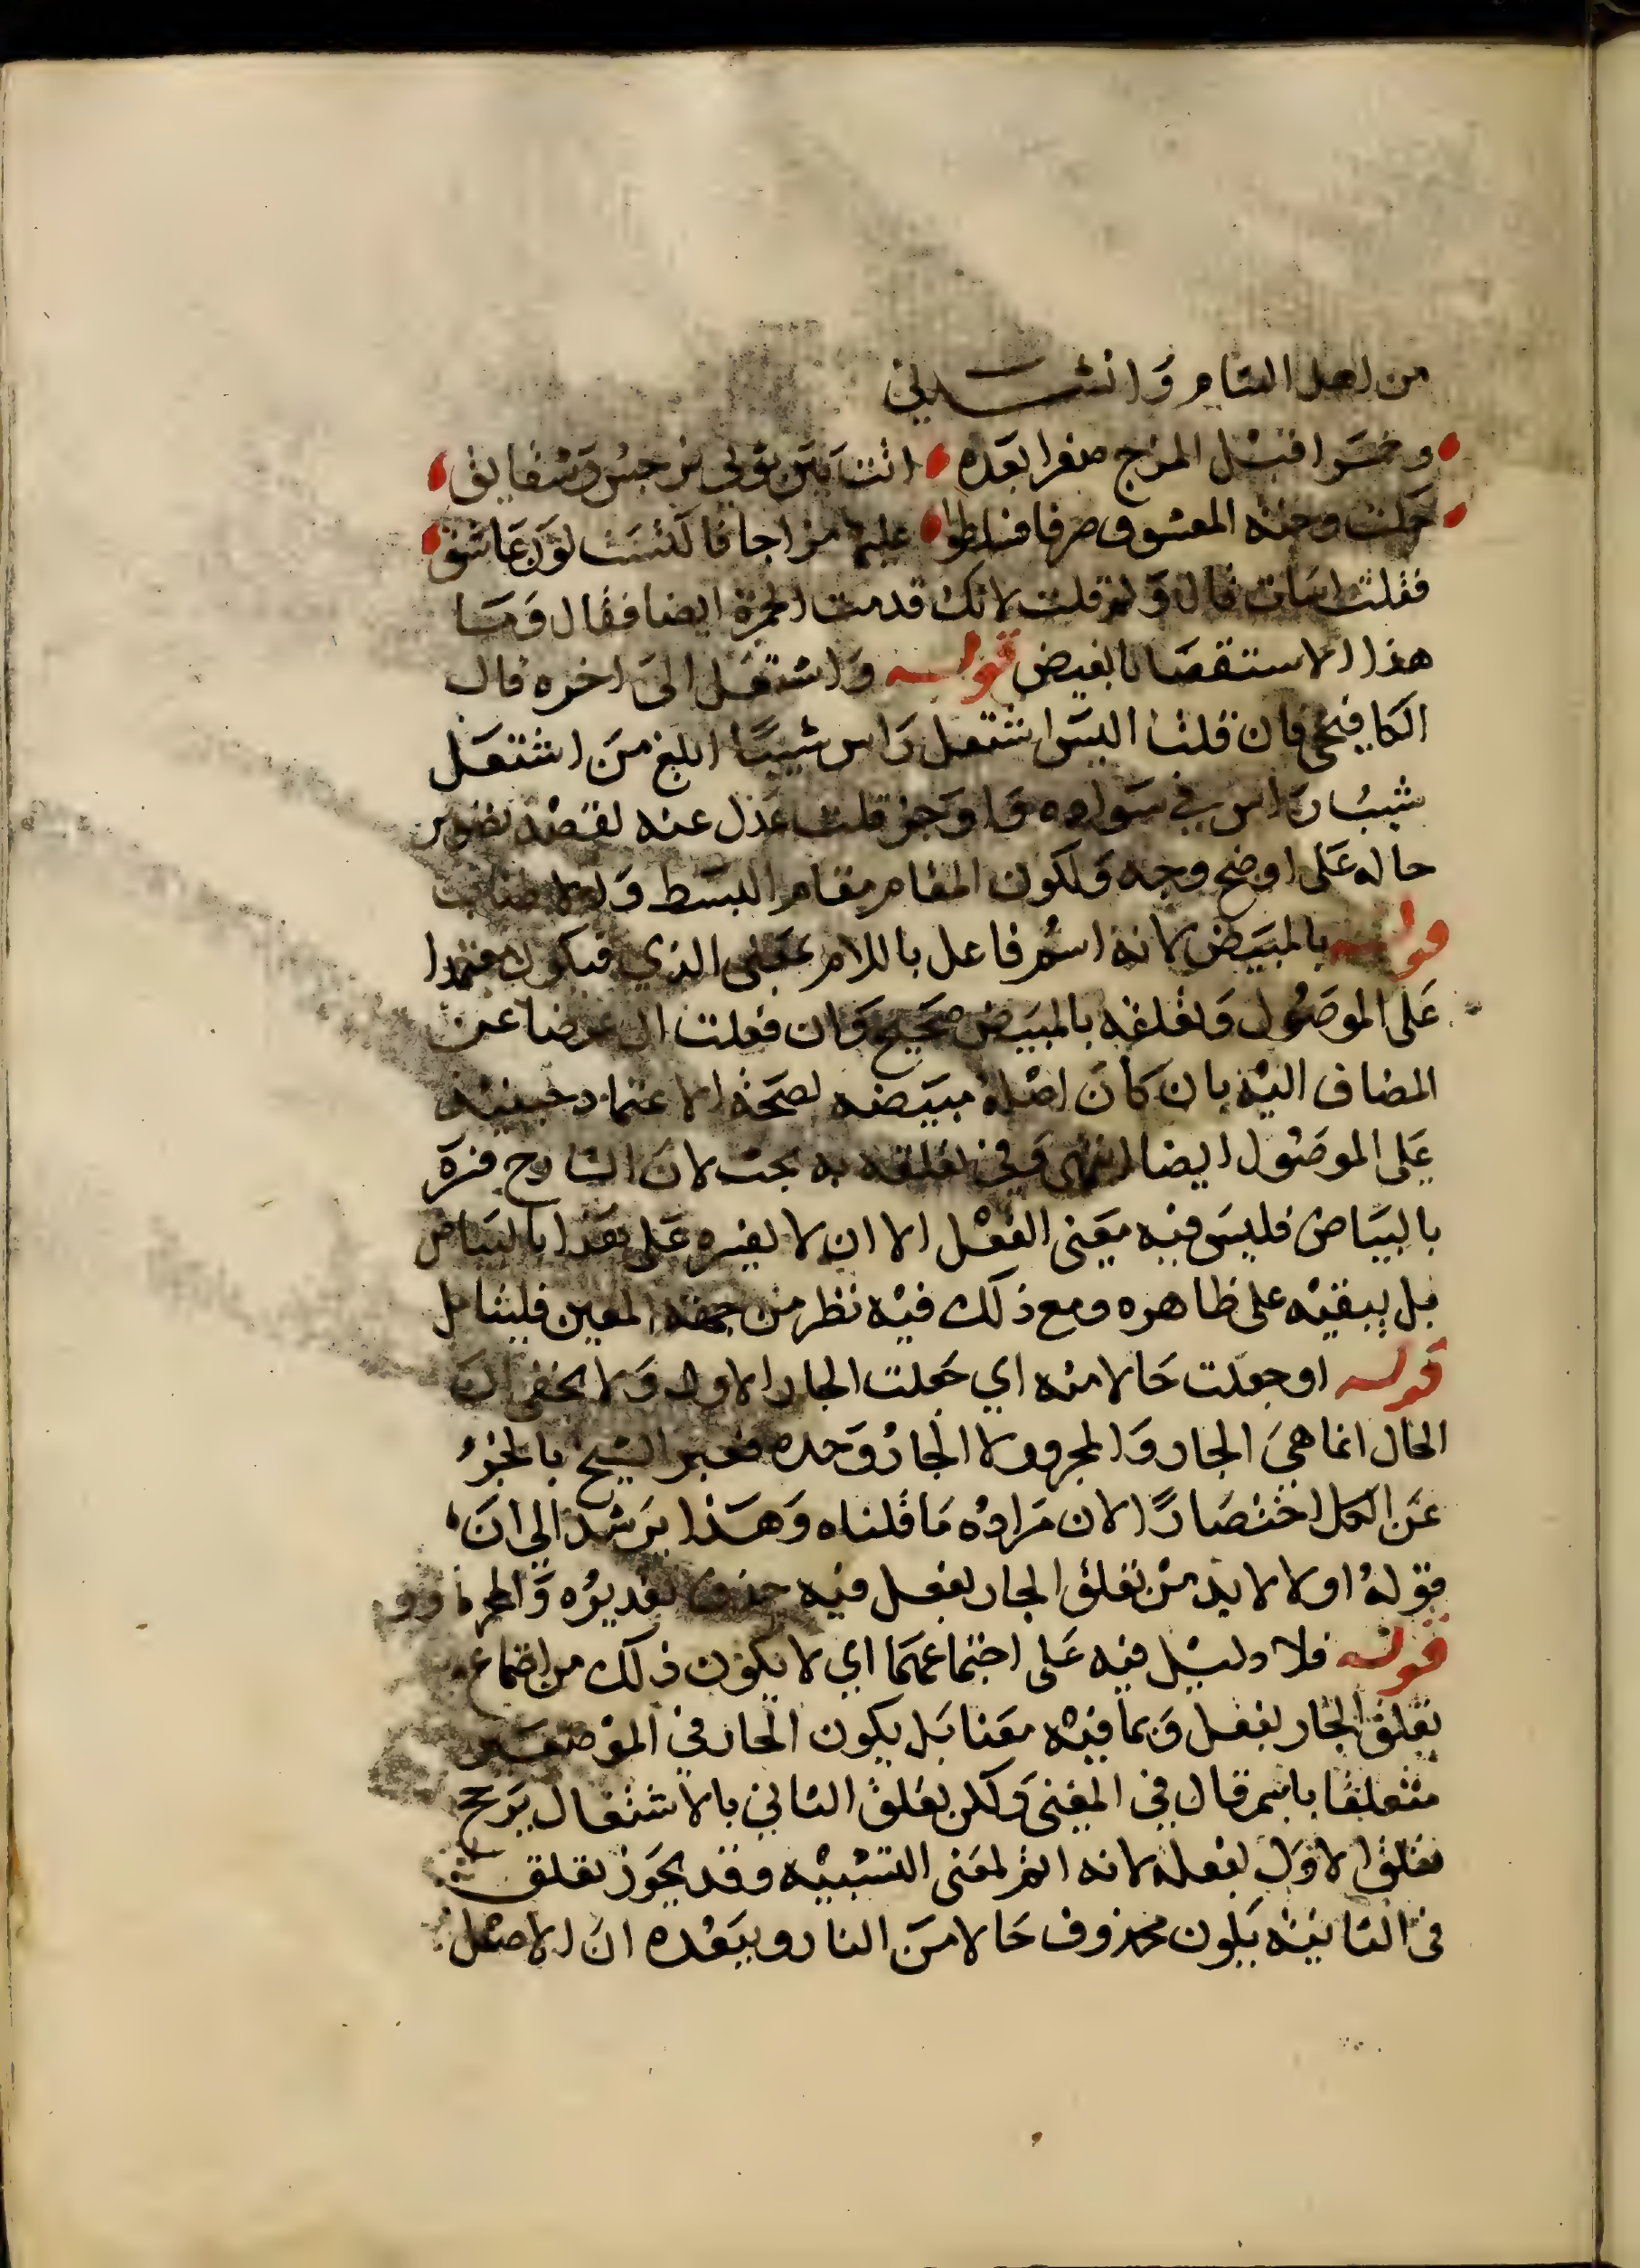 من اهل الشام وانشدني
وحمرا قبل المزج صفرا بعده اتت بين ثوبي نرجس وشقايق
حكت وجنة المعشوق صرفا فسلطوا عليها مزاجا فاكتست لون عاشق
فقلت اسات قال ولم قلت لانك قدمت الحمرة ايضا فقال وما
هذا الاستقصا يا بغيض قوله واشتعل الى اخره قال
الكافيجي فان قلت اليس اشتعل راس شيبا ابلغ من اشتعل
شيب راس في سواده واوجز قلت عدل عنه لقصد تصوير
حاله على اوضح وجه ولكون المقام مقام البسط و
قوله بالمبيض لانه اسم فاعل باللام بمعنى الذي فيكون معتمدا
على الموصول وتعلقه بالمبيض صحيح وان فعلت ال عوضا عن
المضاف اليه بان كان اصله مبيضه لصحة الاعتماد حينيذ
على الموصول ايضا انتهى وفي تعلقه به بحث لان الشارح فسره
بالبياض فليس فيه معنى الفعل الا ان لا يفسره على بعد ا بالبياض
بل يبقيه على ظاهره ومع ذلك فيه نظر من جهة المعين فليتامل
قوله او جعلت حالا منه اي جعلت الجار الاول ولا يخفى ان
الحال انما هي الجار والمجرور لا الجار وحده فعبر الشيخ بالجزء
عن الكل اختصارا لان مراده ما قلناه وهذا يرشد الى ان
قوله اولا لا بد من تعلق الجار بفعل فيه حذف تقديره والمجرور
قوله فلا دليل فيه على اجتماعهما اي لا يكون ذلك من اجتماع
تعلق الجار بفعل وبما فيه معنا بل يكون الجار في الموضعين
متعلقا باسم قال في المغني ولكن تعلق الثاني بالاشتعال يرجح
تعلق الاول بفعله لانه اتم لمعنى التشبيه وقد يجوز تعلق
في الثانية بكون محذوف حالا من النار ويبعده ان الاصل